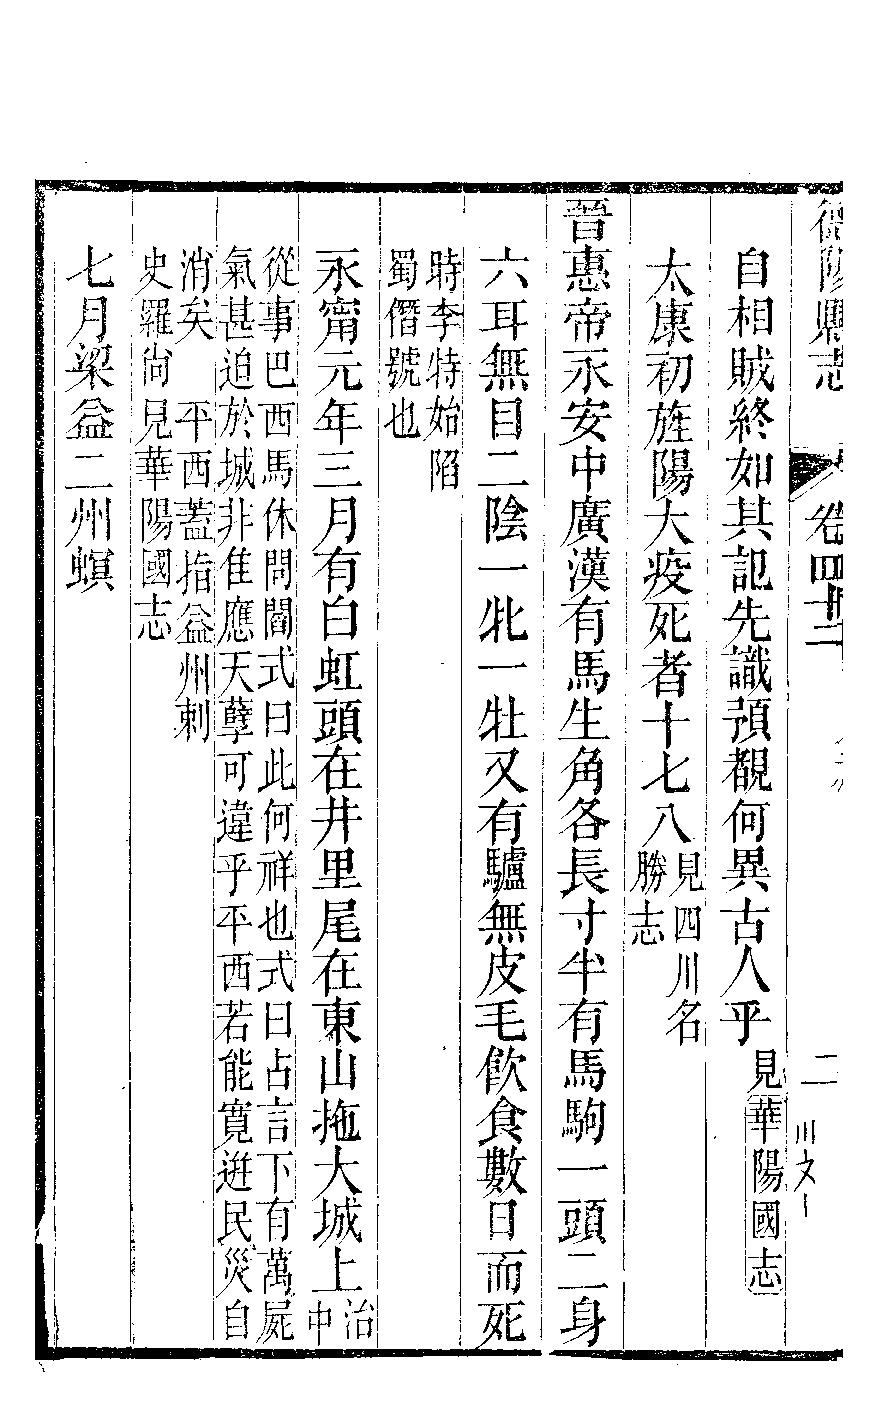 德陽縣志
卷四十二
二
自相賊終如其記先識預覩何異古人乎
見華陽國志
太康初旌陽大疫死者十七八
見四川名
勝志
晉惠帝永安中廣漢有馬生角各長寸半有馬駒一頭二身
六耳無目二陰一牝一牡又有驢無皮毛飲食數日而死
時李特始陷
蜀僭號也
永甯元年三月有白虹頭在井里尾在東山拖大城上
治
中
從事巴西馬休問閻式曰此何祥也式曰占言下有萬屍
氣甚迫於城非佳應天孽可違乎平西若能寬迸民災自
消矣 平西蓋指益州刺
史羅尙見華陽國志
七月梁益二州螟